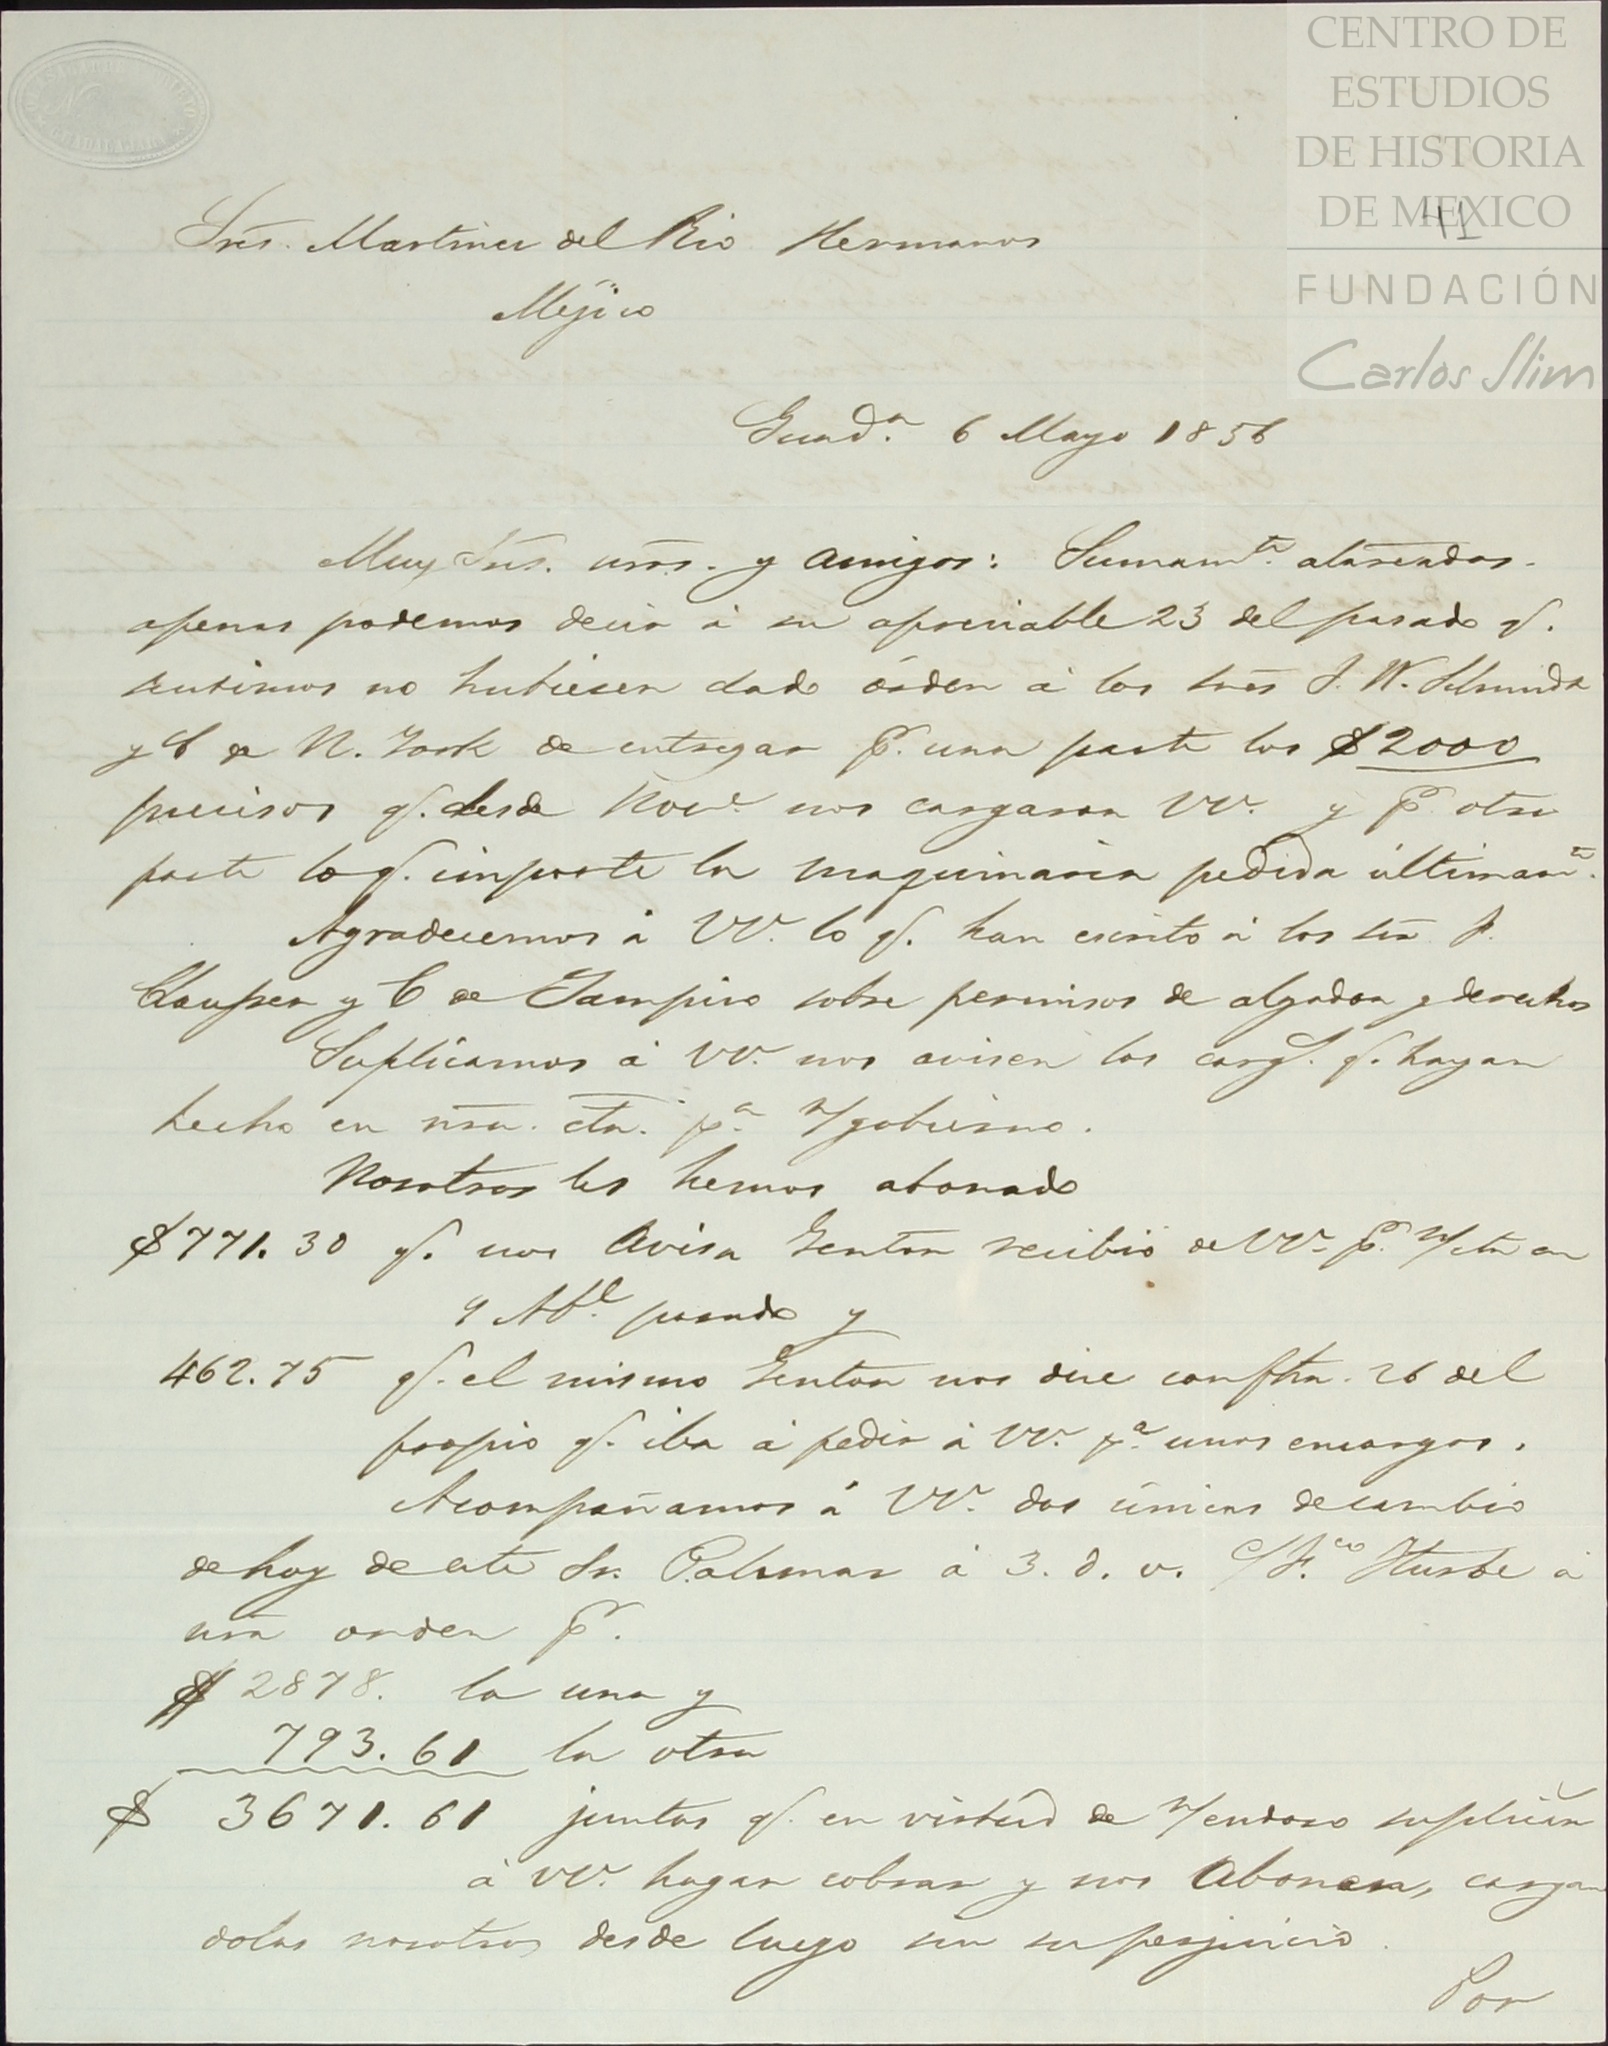 CENTRO DE
ESTUDIOS
DE HISTORIA
DE MEXICO
41
FUNDACIÓN
Carlos Slim
GUADALAJARA
Sres. Martinez del Rio Hermanos
Méjico
Guad.a 6 Mayo 1856
Muy Sres. nros. y amigos: Sumam.te atareados
apenas podemos decir á su apreciable 23 del pasado q.
sentimos no hubiesen dado órden á los sres J. W. Schmidt
y C de N. York de entregar p.r una parte los $2000
precisos q. desde Nov.e nos cargaron VV. y p.r otra
parte lo q. importe la maquinaria pedida últimam.te
Agradecemos á VV. lo q. han escrito á los sres J.
Claussen y C de Tampico sobre permisos de algodon y derechos
Suplicamos á VV. nos avisen los carg.s q. hayan
hecho en nra. cta. p.a n/gobierno.
Nosotros les hemos abonado
$771.30 q. nos avisa Genton recibió de VV. p.r n/cta en
9 Ab.l pasado y
462.75 q. el mismo Genton nos dice con fha. 26 del
propio q. iba á pedir á VV. p.a unos encargos.
Acompañamos á VV. dos únicas de cambio
de hoy de este Sr. Palomar á 3. d. v. c/ F.co Iturbe á
nra orden p.r
$ 2878. la una y
793.61 la otra
$ 3671.61 juntas q. en virtud de n/endoso suplicam
á VV. hagan cobrar y nos abonen, cargan
dolas nosotros desde luego sin su perjuicio.
Por